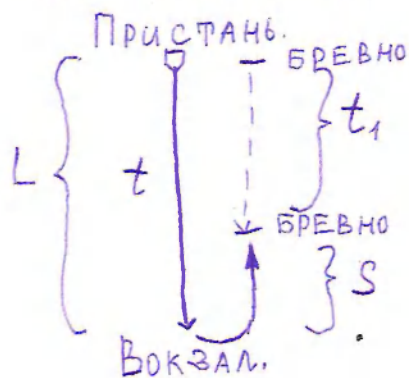 ПРИСТАНЬ.
БРЕВНО
L
t
t₁
БРЕВНО
S
ВОКЗАЛ.